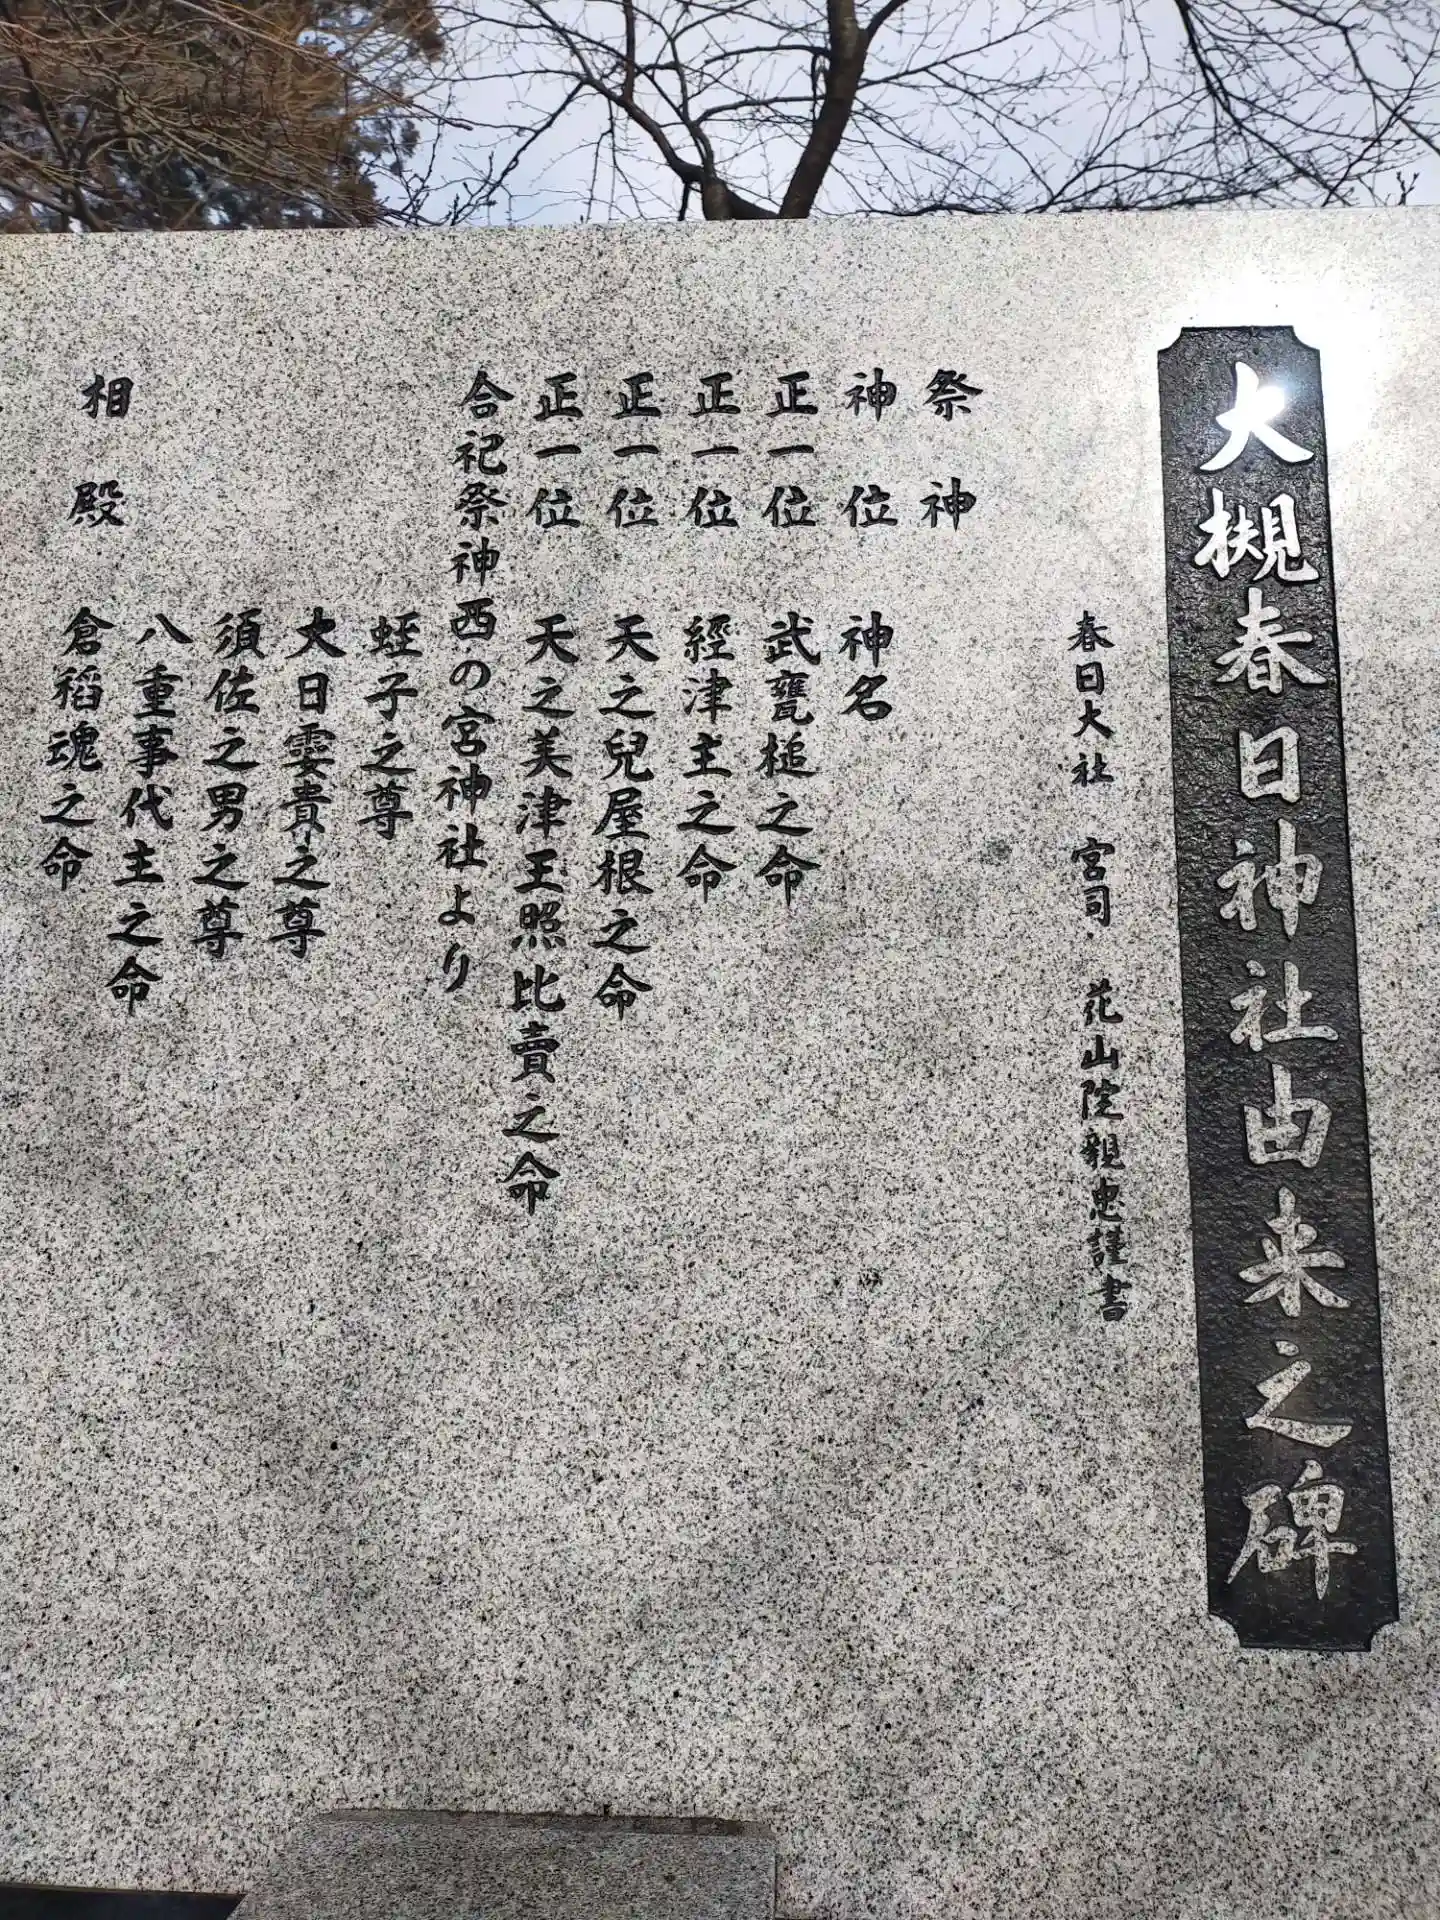 大槻春日神社由来之碑
春日大社 宮司 花山院親忠謹書
祭神
神位 神名
正一位 武甕槌之命
正一位 經津主之命
正一位 天之兒屋根之命
正一位 天之美津王照比賣之命
合祀祭神西の宮神社より
蛭子之尊
大日孁貴之尊
須佐之男之尊
八重事代主之命
相殿 倉稲魂之命